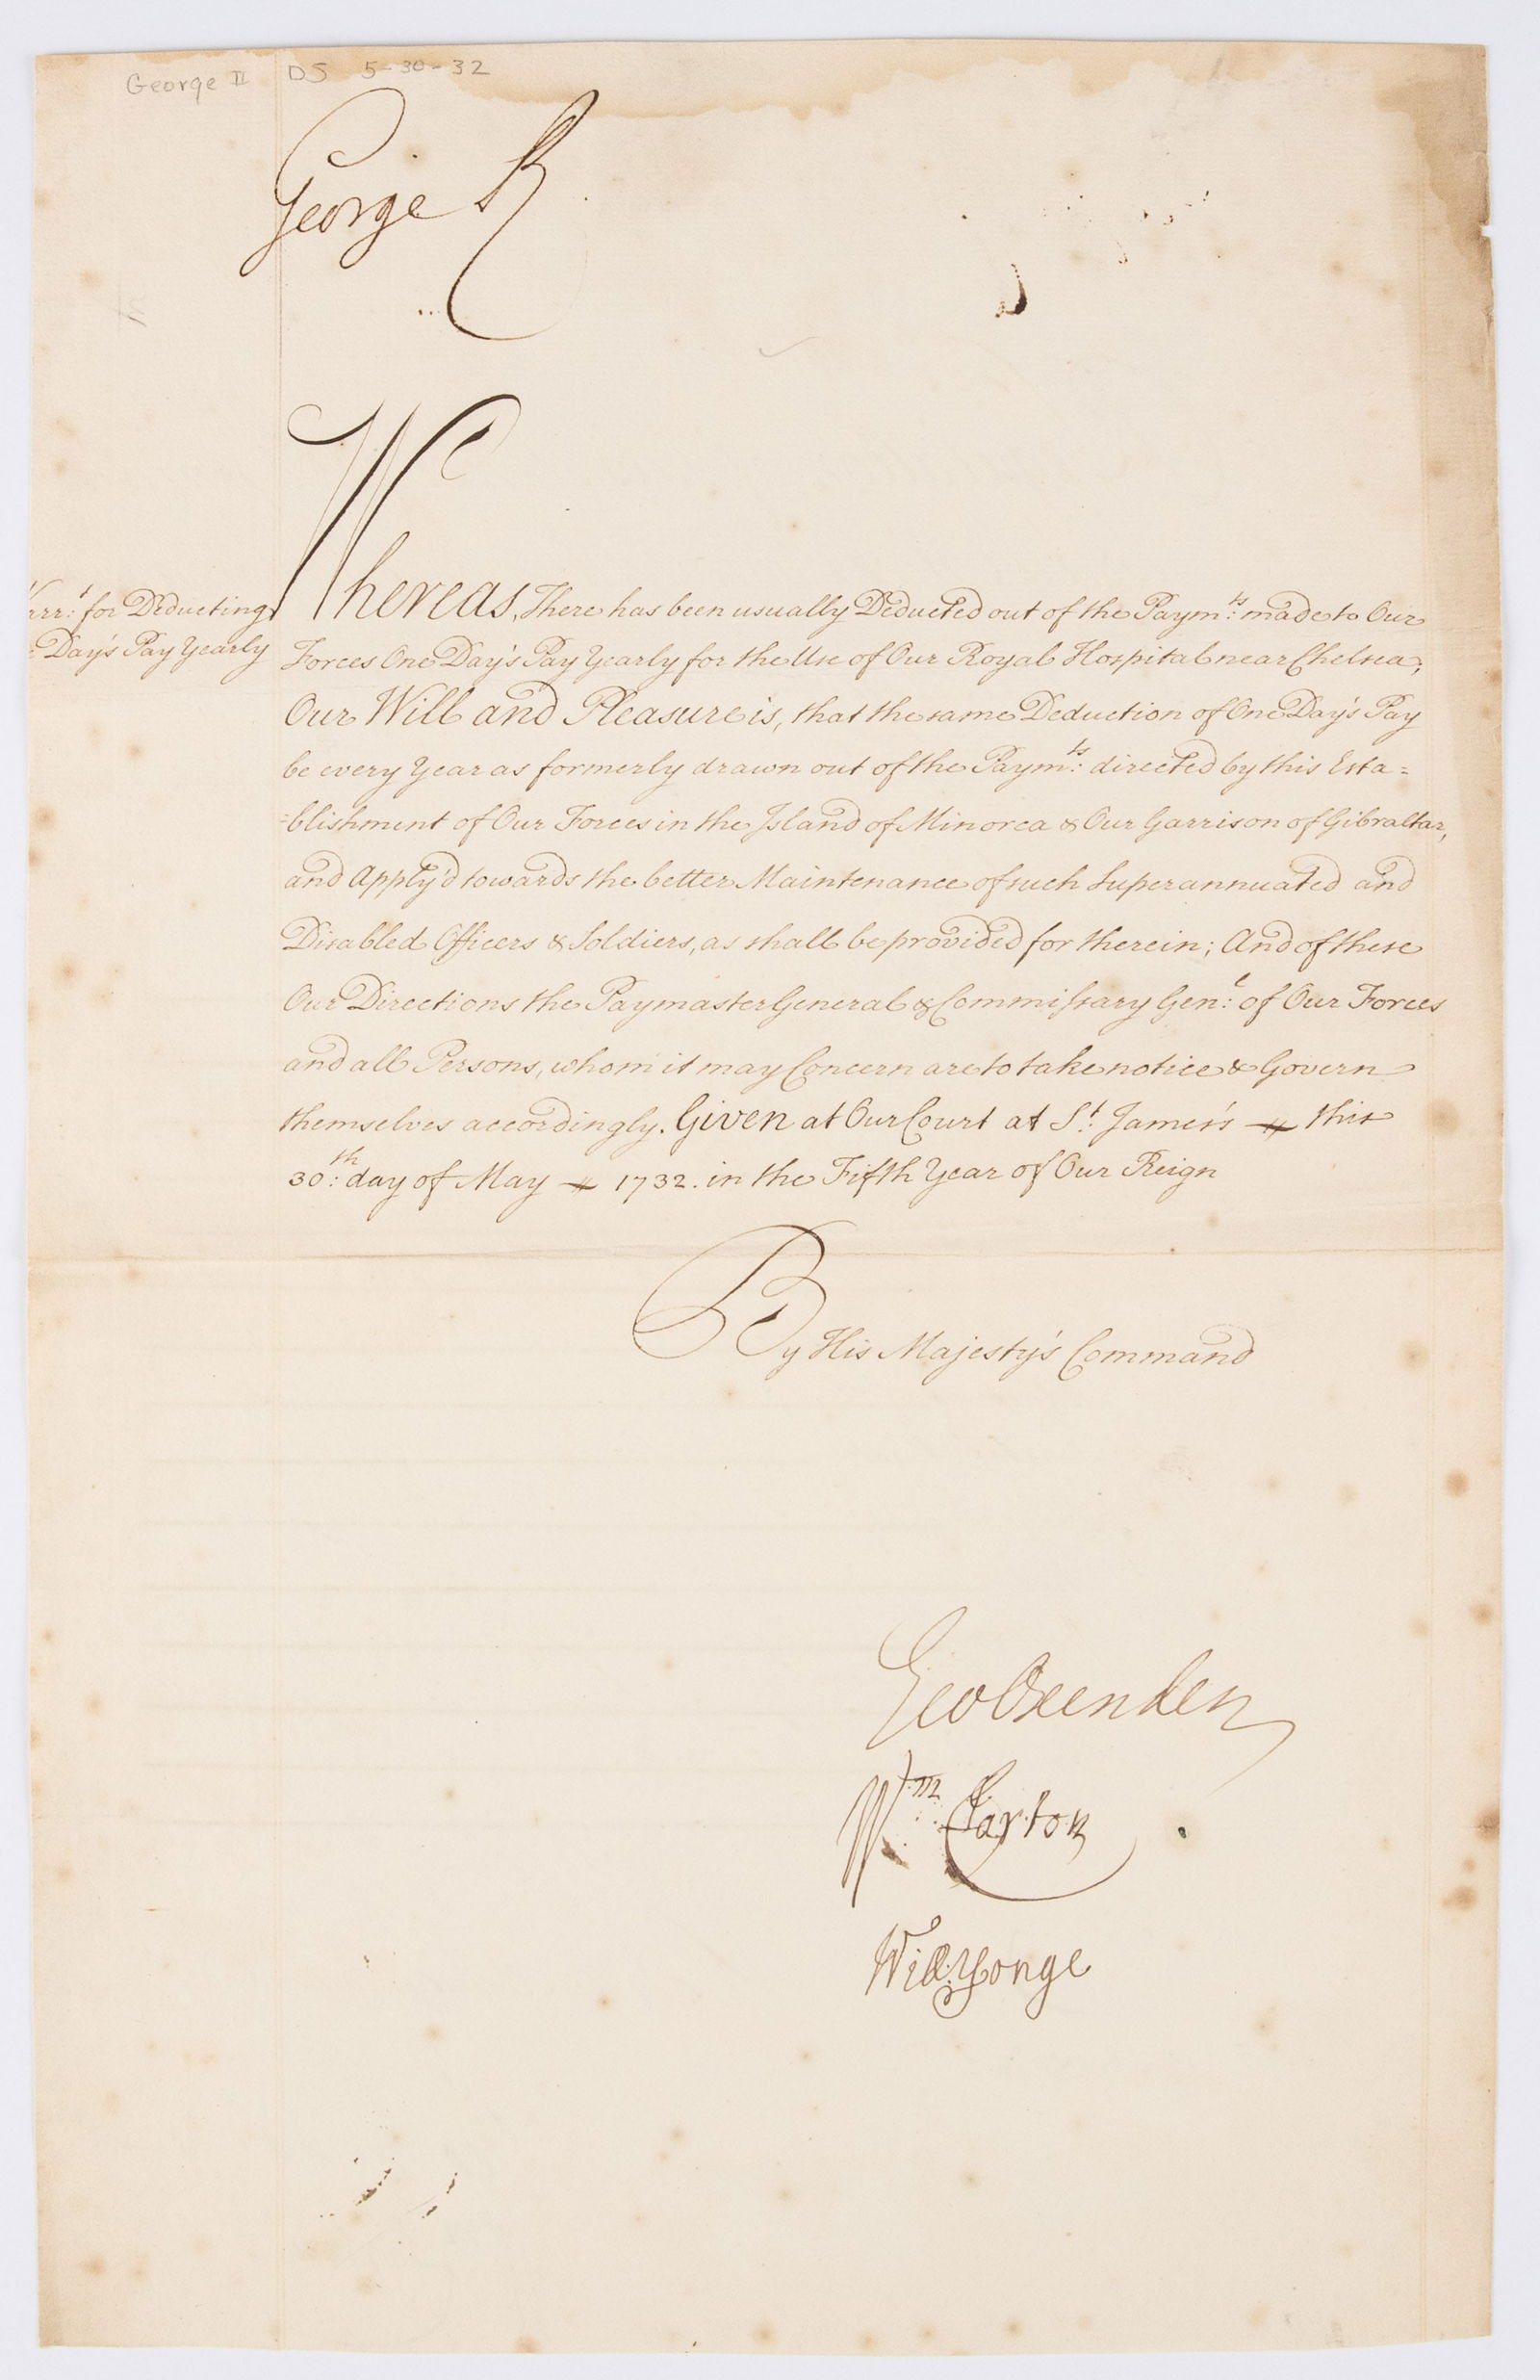 George II DS 5-30-32
George R
Warr:t for Deducting
Day's Pay Yearly
Whereas, There has been usually Deducted out of the Paym:ts made to Our
Forces One Day's Pay Yearly for the Use of Our Royal Hospital near Chelsea;
Our Will and Pleasure is, that the same Deduction of One Day's Pay
be every Year as formerly drawn out of the Paym:ts directed by this Esta=
=blishment of Our Forces in the Island of Minorca & Our Garrison of Gibraltar,
and Apply'd towards the better Maintenance of such Superannuated and
Disabled Officers & Soldiers, as shall be provided for therein; And of these
Our Directions the Paymaster General & Commissary Gen:l of Our Forces
and all Persons, whom it may Concern are to take notice & Govern
themselves accordingly. Given at Our Court at St. James's this
30:th day of May 1732. in the Fifth Year of Our Reign
By His Majesty's Command
Geo Oxenden
Wm Clayton
Will: Yonge